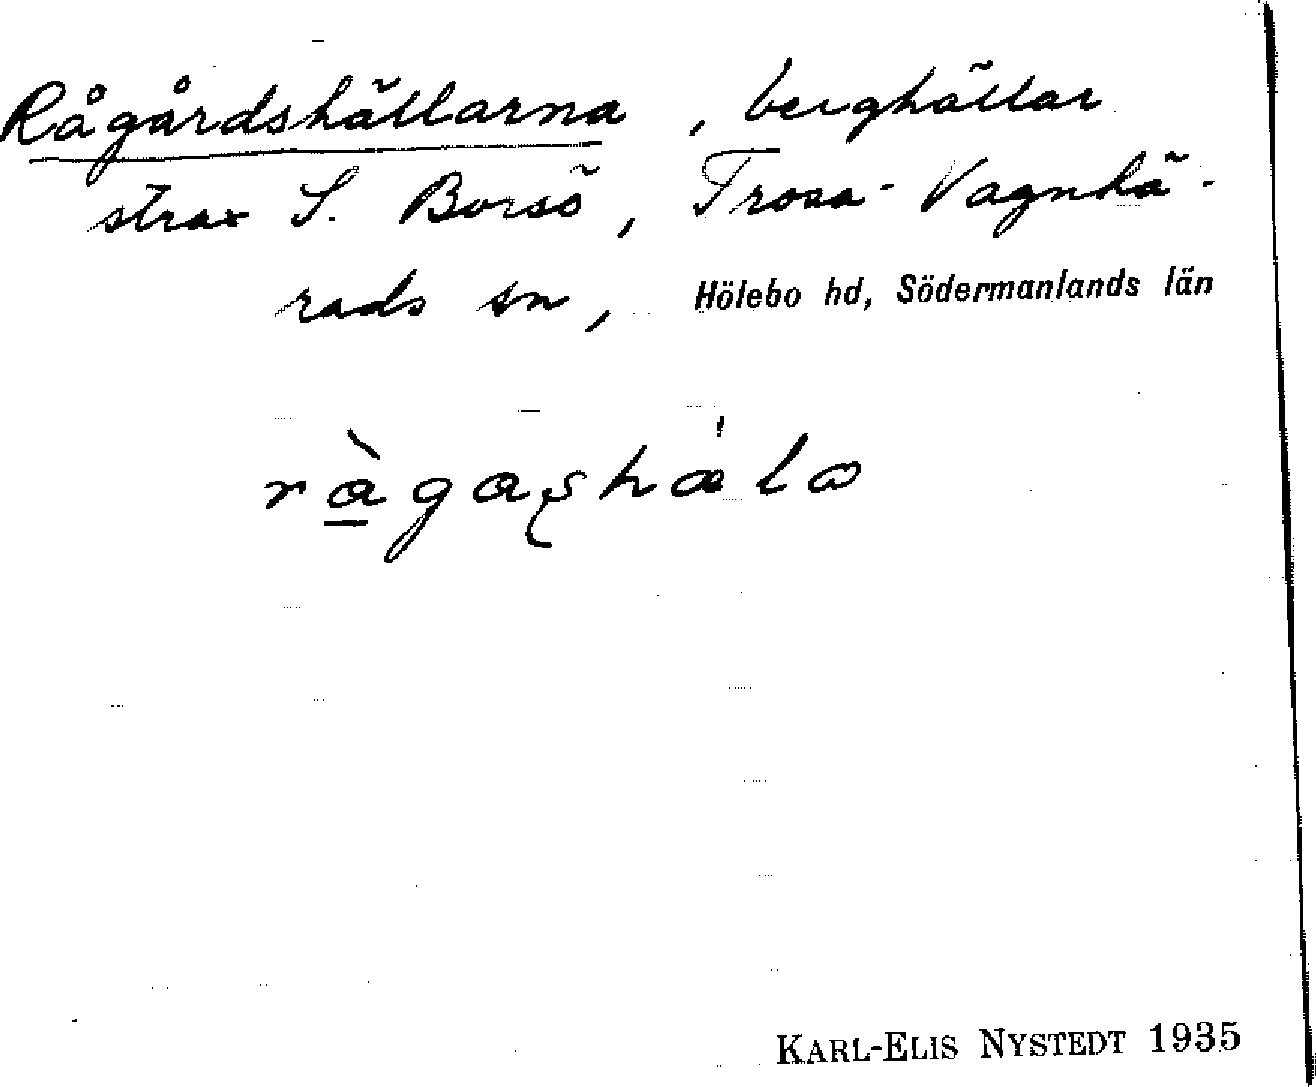 Rågårdshällarna, berghällar
strax S. Borsö, Trosa-Vagnhä-
rads sn, Hölebo hd, Södermanlands län
KARL-ELIS NYSTEDT 1935